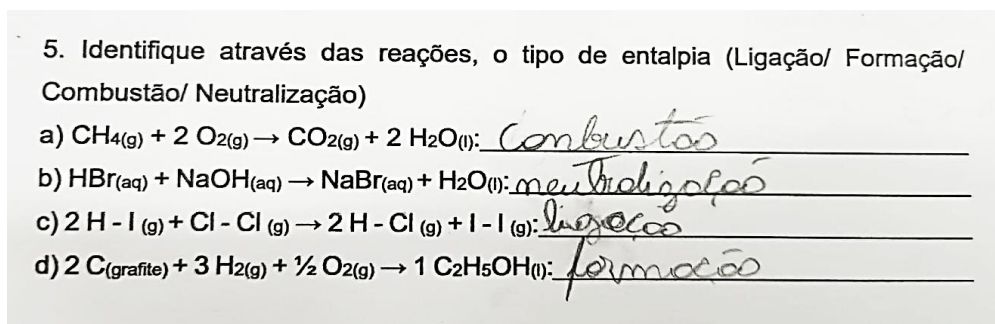 5. Identifique através das reações, o tipo de entalpia (Ligação/ Formação/
Combustão/ Neutralização)
a) CH4(g) + 2 O2(g) → CO2(g) + 2 H2O(l): Combustão
b) HBr(aq) + NaOH(aq) → NaBr(aq) + H2O(l): neutralização
c) 2 H - I (g) + Cl - Cl (g) → 2 H - Cl (g) + I - I (g): ligação
d) 2 C(grafite) + 3 H2(g) + ½ O2(g) → 1 C2H5OH(l): formação